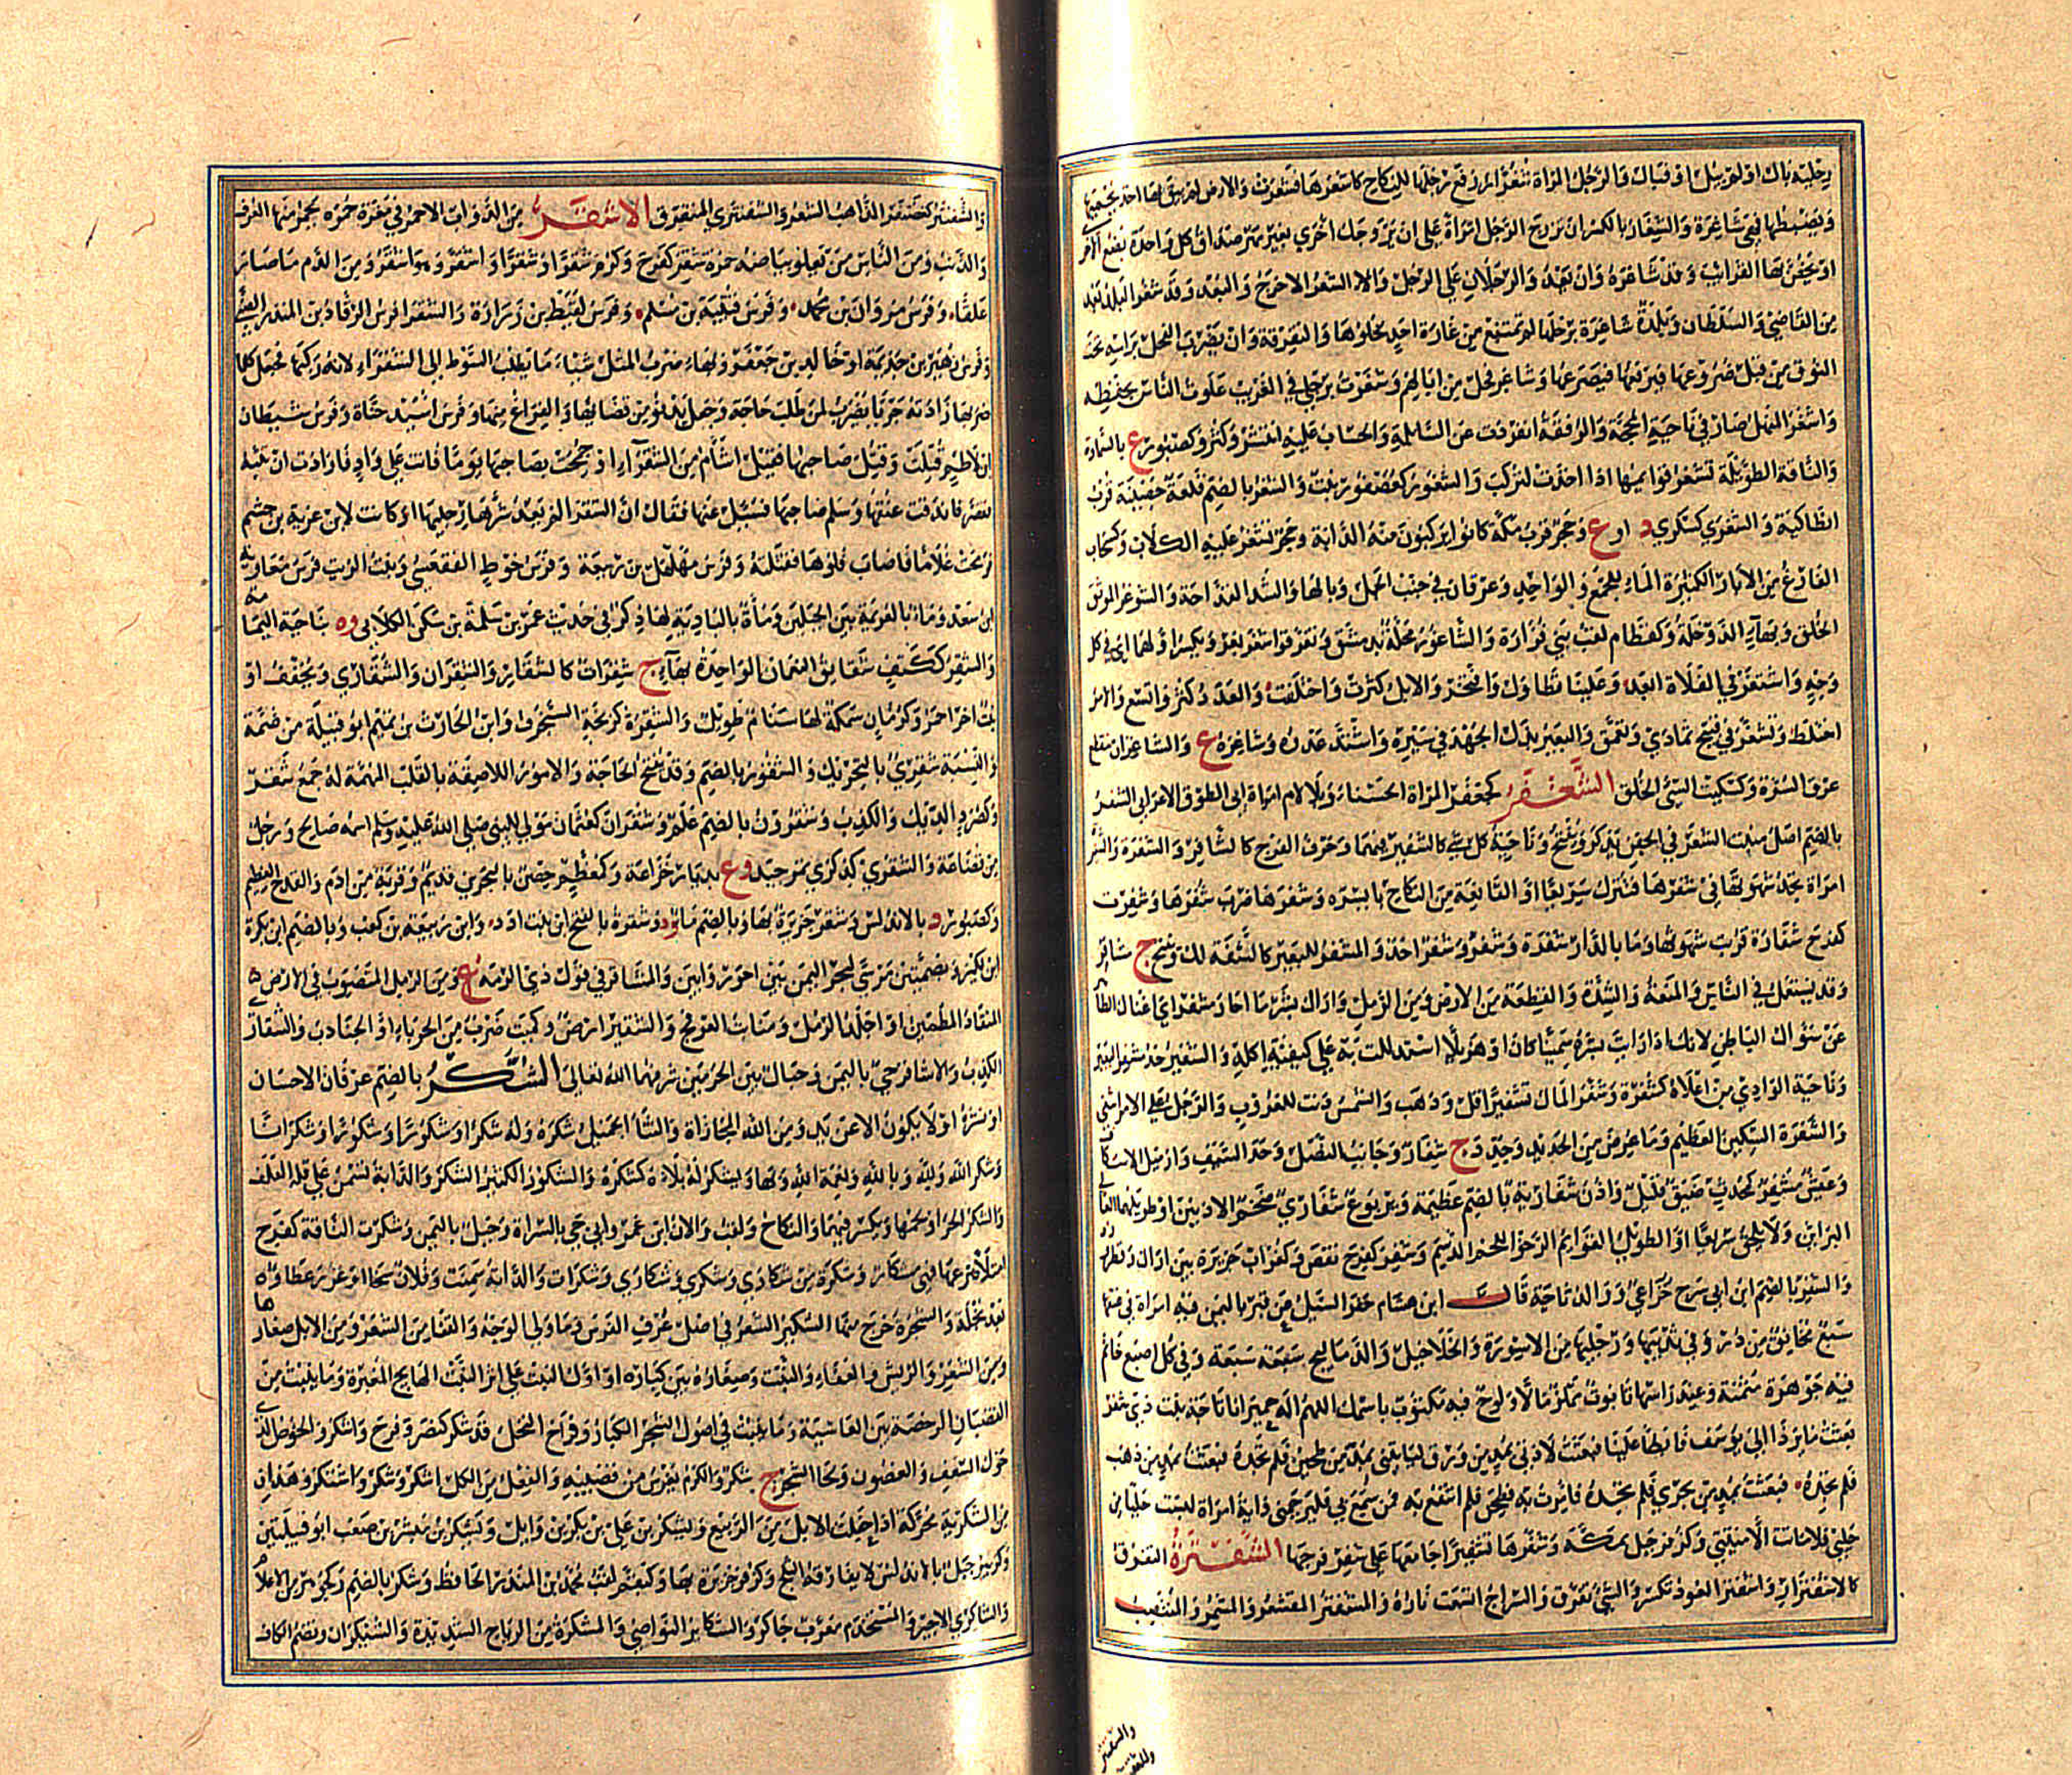 رجليه بال او لم يبل او فبال والرجل المراة شغورا رفع رجلها للنكاح كاشغرها فشغرت والارض لم يبق بها احد يحميها
ويضبطها فهي شاغرة والشغار بالكسر ان تزوج الرجل امراة على ان يزوجك اخرى بغير مهر صداق كل واحدة بضع الاخرى
او يخص بها القرائب وقد شاغره وان يعدو الرجلان على الرجل والشغر الاخراج والبعد وقد شغر البلد بعد
من القاضي والسلطان وبلدة شاغرة برجلها لم تمتنع من غارة احد لخلوها والتفرقة وان يضرب الفحل براسه تحت
النوق من قبل ضروعها فيرفعها فيصرعها وشاغر فحل من ابالهم وشغرت برجلي في الغريب علوت الناس بحفظه
واشتغر المنهل صار في ناحية المحجة والرفقة انفردت عن السابلة والحساب عليه انتشر وكثر وكصبور ع بالسماوة
والناقة الطويلة تشغر قوائمها اذا اخذت لتركب والشغور كعصفور نبت والشغر بالضم قلعة حصينة قرب
انطاكية والشغرى كسكرى د او ع وحجر قرب مكة كانوا يركبون منه الدابة وحجر تشغر عليه الكلاب وكسحاب
الفارغ من الابار الكثيرة الماء للجمع والواحد وعرقان في جنب الجمل وبالها والشد القداحة والشوغر الموثق
الخلق وبهاء الدوخلة وكقطام لقب بني فزارة والشاغور محلة بدمشق وتفرقوا شغر بغر ويكسر اولها اي في كل
وجه واشتغر في الفلاة ابعد وعلينا تطاول وافتخر والابل كثرت واختلفت والعدد كثر واتسع والامر
اختلط وتشغر في قبيح تمادى وتعمق والبعير بذل الجهد في سيره واشتد عدوه وشاغرة ع والشاغران منقطع
عرق السرة وكسكيت السيئ الخلق الشغفر كجعفر المراة الحسناء وبلا لام امراة ابي الطوق الاعرابي الشفر
بالضم اصل منبت الشعر في الجفن يذكر ويفتح وناحية كل شيء كالشفير فيهما وحرف الفرج كالشافر والشفرة والشفيرة
امراة تجد شهوتها في شفرها فتنزل سريعا او القانعة من النكاح بايسره وشفرها ضرب شفرها وشفرت
كفرح شفارة قربت شهوتها وما بالدار شفرة وشفر وشفر احد والمشفر للبعير كالشفة لك ويفتح ج مشافر
وقد يستعمل في الناس والمنعة والشدة والقطعة من الارض ومن الرمل واراك بشر ما احار مشفر اي اغناك الظاهر
عن سؤال الباطن لانك اذا رايت بشره سمينا كان او هزيلا استدللت به على كيفية اكله والشفير حد مشفر البعير
وناحية الوادي من اعلاه كشفره وشفر المال تشفيرا قل وذهب والشمس دنت للغروب والرجل على الامر اشفى
والشفرة السكين العظيم وما عرض من الحديد وحدد ج شفار وجانب النصل وحد السيف وازميل الاسكاف
وعيش مشفر كمحدث ضيق قليل واذن شفارية بالضم عظيمة ويربوع شفاري ضخم الاذنين او طويلهما العاري
البراثن ولا يلحق سريعا او الطويل القوائم الرخو اللحم الدسم وشفر كفرح نقص وكغراب جزيرة بين اوال وقطر
والشفر بالضم ابن ابي سرح خزاعي ووالد تاجة قال ابن هشام حفر السيل عن قبر باليمن فيه امراة في عنقها
سبع مخانق من در وفي يديها ورجليها من الاسورة والخلاخيل والدماليج سبعة سبعة وفي كل اصبع خاتم
فيه جوهرة مثمنة وعند راسها تابوت مملو مالا ولوح فيه مكتوب باسمك اللهم اله حمير انا تاجة بنت ذي شفر
بعثت مائرنا الى يوسف فابطا علينا فبعثت لاذتي بمد من ورق لتاتيني بمد من طحين فلم تجده فبعثت بمد من ذهب
فلم تجده فبعثت بمد من بحري فلم تجده فامرت به فطحن فلم انتفع به فمن سمع بي فليرحمني واية امراة لبست حليا من
حليي فلا ماتت الا ميتتي وكزفر جبل بمكة وشفرها تشفيرا جامعها على شفر فرجها الشفترة التفرق
كالاشفترار واشفتر العود تكسر والشيء تفرق والسراج اتسعت ناره والمشفتر المقشعر والمتشمر والمنتصب
والشفتر
وللقفر
والشفنتر كغضنفر الذاهب الشعر والشفنترى المتفرق الاشقر من الدواب الاحمر في مغرة حمرة يحمر منها العرف
والذنب ومن الناس من تعلو بياضه حمرة شقر كفرح وكرم شقرا وشقرة واشقر وهو اشقر ومن الدم ما صار
علقا وفرس مروان بن محمد وفرس قتيبة بن مسلم وفرس لقيط بن زرارة والشقرا فرس الرقاد بن المنذر الضبي
وفرس زهير بن جذيمة او خالد بن جعفر وبها ضرب المثل شيئا ما يطلب السوط الى الشقراء لانه ركبها فجعل كلما
ضربها زادته جريا يضرب لمن طلب حاجة وجعل يدنو من قضائها والفراغ منها وفرس اسيد بن حناة وفرس شيطان
بن لاطم قتلت وقتل صاحبها فقيل اشام من الشقراء او جمحت بصاحبها يوما فاتت على واد فارادت ان تثبه
فقصرت فاندقت عنقها وسلم صاحبها فسئل عنها فقال ان الشقرا لم يعد شرها رجليها او كانت لابن غزية بن جشم
فرمحت غلاما فاصاب فلوها فقتلته وفرس مهلهل بن ربيعة وفرس خوط الفقعسي وبنت الزيت فرس معاوية
ابن سعد وماء بالعريمة بين الجبلين وماة بالبادية لها ذكر في حديث عمرو بن سلمة بن سكن الكلابي وة بناحية اليمامة
والشقر ككتف شقائق النعمان الواحدة بهاء ج شقرات كالشقار والشقران والشقارى ويخفف او
نبت اخر احمر وكرمان سمكة لها سنام طويل والشقرة كزنخة السنجرف وابن الحارث بن تميم ابو قبيلة من ضبة
والنسبة شقري بالتحريك والشقور بالضم وقد يفتح الحاجة والامور اللاصقة بالقلب المهمة له جمع شقر
وكصرد الديك والكذب وشقرون بالضم علم وشقران كعثمان مولى للنبي صلى الله عليه وسلم اسمه صالح ورجل
من قضاعة والشقرى كذكرى تمر جيد و ع بديار خزاعة وكمعظم حصن بالبحرين قديم وقربة من ادم والقدح العظيم
وكصبور د بالاندلس وشقر جزيرة بها وبالضم ماء ود وشقرة بالفتح ابن نبت ادد وابن ربيعة بن كعب وبالضم ابن نكرة
ابن لكيز وبضمتين مرسى ببحر اليمن بين احور وابين والمشاقر في قول ذي الرمة ع ومن الرمل المتصوب في الارض
المنقاد المطمئن او اجلد الرمل ومنابت العرفج والشقير ارض وكميت ضرب من الحرباء او الجنادب والشقار
الكذب والاشاقر حي باليمن وجبال بين الحرمين شرفهما الله تعالى الشكر بالضم عرفان الاحسان
او نشره او لا يكون الا عن يد ومن الله المجازاة والثناء الجميل شكره وله شكرا وشكورا وشكرانا
وشكر الله ولله وبالله ونعمة الله وبها وتشكر له بلاءه كشكره والشكور الكثير الشكر والدابة تسمن على قلة العلف
والشكر الحر او لحمها ويكسر فيهما والنكاح ولقب والان ابن عمرو ابي حي بالسراة وجبل باليمن وشكرت الناقة كفرح
امتلا ضرعها فهي مشكار وشكرة من شكارى وشكرى وشكرات والدابة سمنت وفلان سخا او غزر عطاوه
بعد بخله والشجرة خرج منها الشكير الشعر في اصل عرف الفرس وما ولي الوجه والقفا من الشعر ومن الابل صغارها
ومن الشعر والريش والعفاء والنبت وصغاره بين كباره او اول النبت على اثر النبت الهايج المغبر وما ينبت من
القضبان الرخصة بين العاسية وما ينبت في اصول الشجر الكبار وفراخ النخل قد شكر كنصر وفرح واشكر والخوص الذي
حول السعف والغصون ولحا الشجر ج شكر والكرم يغرس من قضيبه والفعل من الكل اشكر وشكر واشتكر وهذا زمان
الشكرية محركة اذا حفلت الابل من الربيع ويشكر بن علي بن بكر بن وايل ويشكر بن مبشر بن صعب ابو قبيلتين
وكزبير جبل بالاندلس لا يفارقه الثلج وكزفر جزيرة بها وكبقم لقب محمد بن المنذر الحافظ وشكر بالضم وكجوهر من الاعلام
والشاكري الاجير والمستخدم معرب جاكر والشكاير النواصي والمشكرة من الرياح الشديدة والشيكران وتضم الكاف